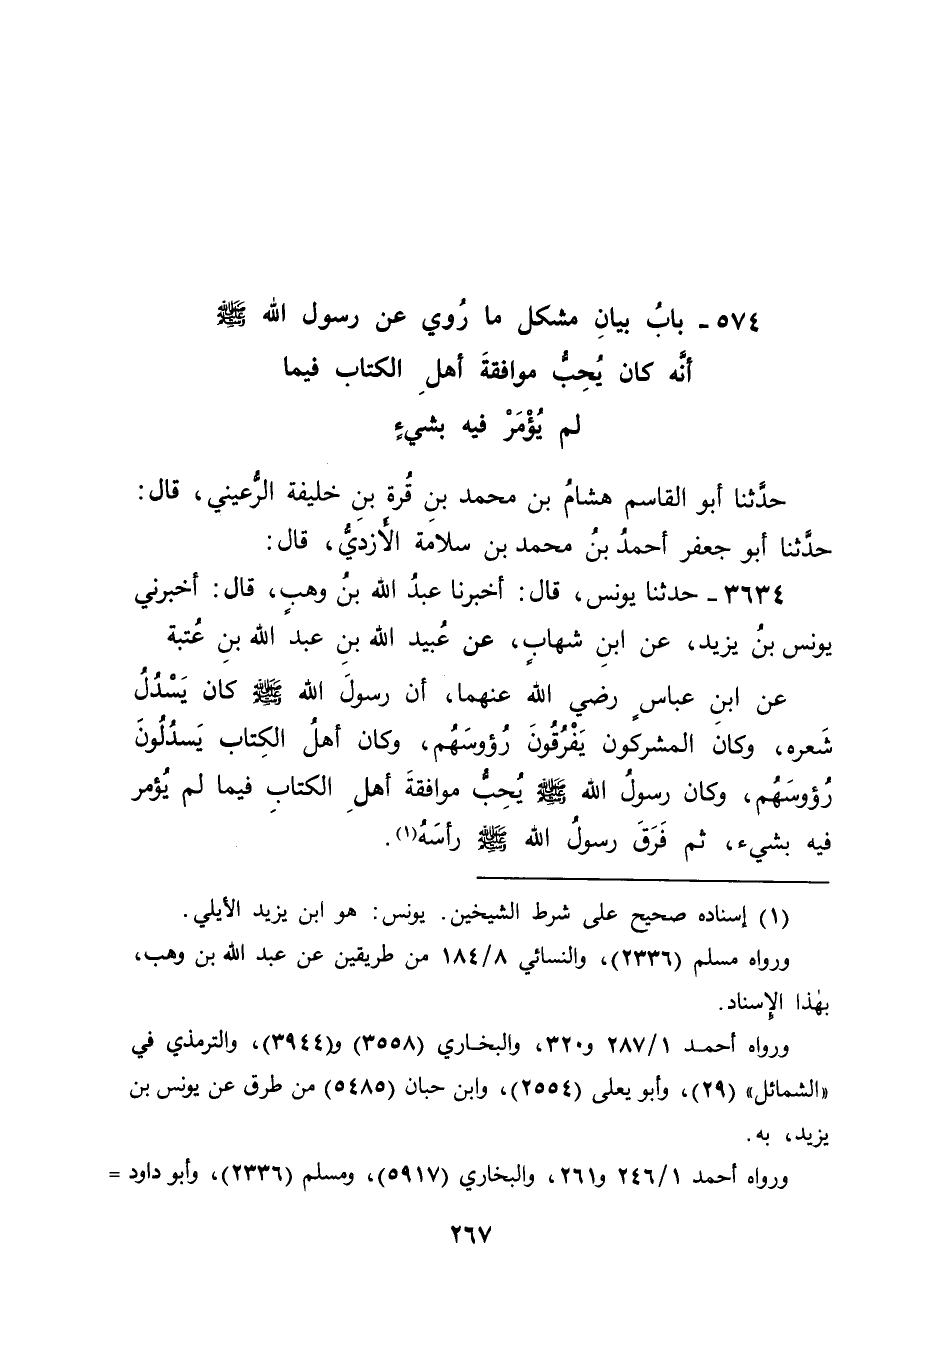 ٥٧٤ ـ بابُ بيانِ مشكل ما رُوي عن رسول الله ﷺ
أنَّه كان يُحِبُّ موافقةَ أهلِ الكتاب فيما
لم يُؤْمَرْ فيه بشيءٍ
حدَّثنا أبو القاسم هشامُ بن محمد بنِ قُرة بنِ خليفة الرُّعيني، قال:
حدَّثنا أبو جعفر أحمدُ بنُ محمد بن سلامة الأزديُّ، قال:
٣٦٣٤ ـ حدثنا يونس، قال: أخبرنا عبدُ الله بنُ وهبٍ، قال: أخبرني
يونس بنُ يزيد، عن ابنِ شهابٍ، عن عُبيد الله بنِ عبد الله بنِ عُتبة
عن ابنِ عباسٍ رضي الله عنهما، أن رسولَ الله ﷺ كان يَسْدُلُ
شَعره، وكان المشركون يَفْرُقُونَ رُؤوسَهُم، وكان أهلُ الكِتاب يَسدُلُونَ
رُؤوسَهُم، وكان رسولُ الله ﷺ يُحِبُّ موافقةَ أهلِ الكتابِ فيما لم يُؤمر
فيه بشيء، ثم فَرَقَ رسولُ الله ﷺ رأسَهُ(١).
(١) إسناده صحيح على شرط الشيخين. يونس: هو ابن يزيد الأيلي.
ورواه مسلم (٢٣٣٦)، والنسائي ١٨٤/٨ من طريقين عن عبد الله بن وهب،
بهٰذا الإسناد.
ورواه أحمـد ٢٨٧/١ و٣٢٠، والبخـاري (٣٥٥٨) و(٣٩٤٤)، والترمذي في
«الشمائل» (٢٩)، وأبو يعلى (٢٥٥٤)، وابن حبان (٥٤٨٥) من طرق عن يونس بن
يزيد، به.
ورواه أحمد ٢٤٦/١ و٢٦١، والبخاري (٥٩١٧)، ومسلم (٢٣٣٦)، وأبو داود =
٢٦٧